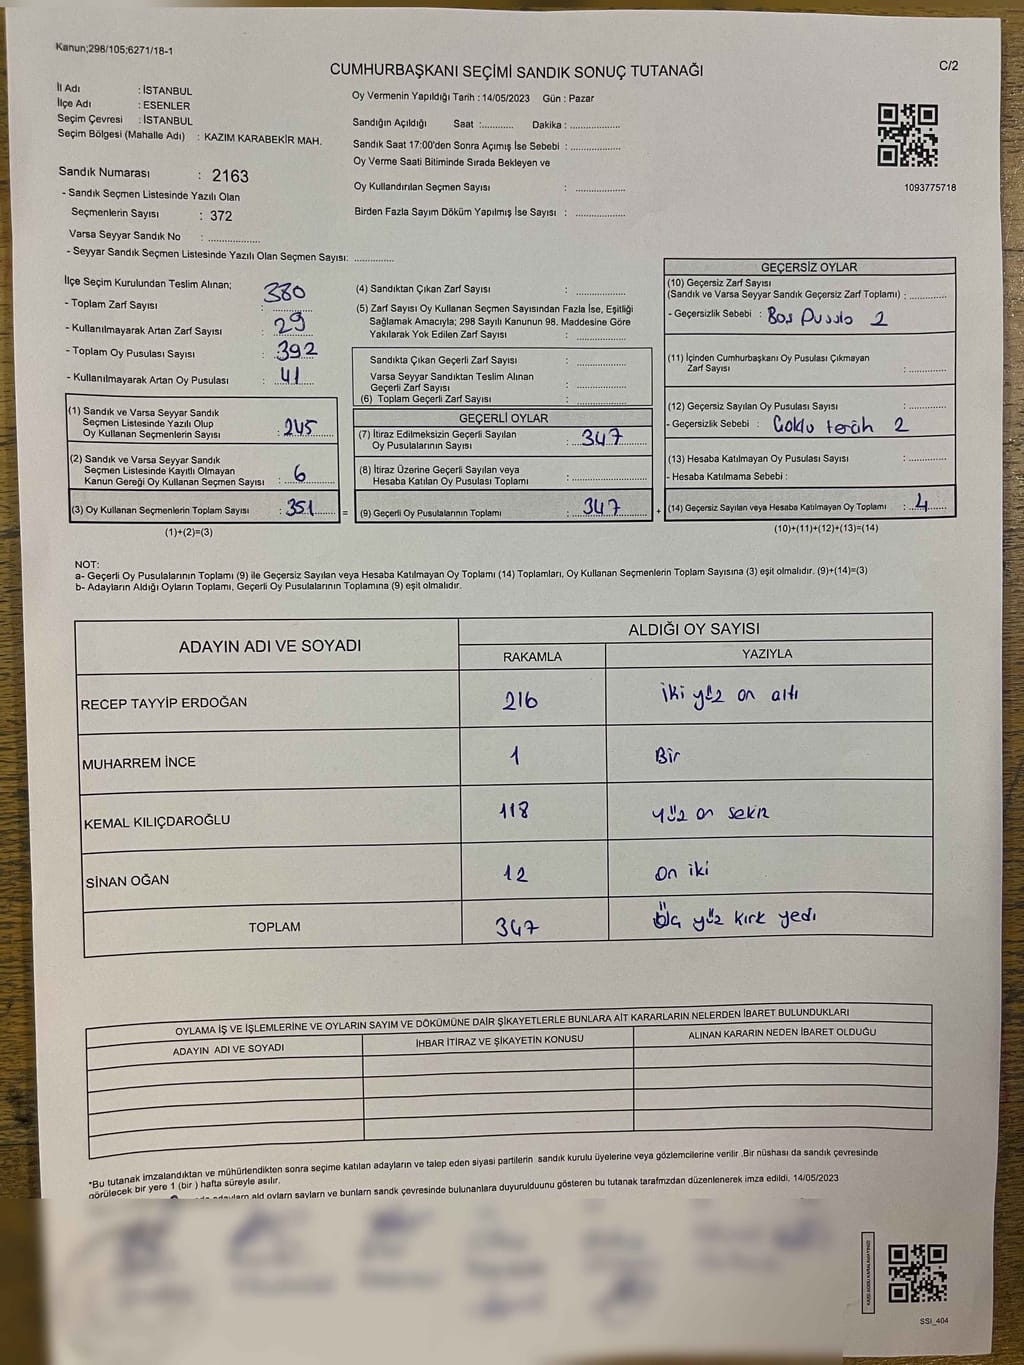 Kanun;298/105;6271/18-1
CUMHURBAŞKANI SEÇİMİ SANDIK SONUÇ TUTANAĞI
C/2
İl Adı : İSTANBUL
İlçe Adı : ESENLER
Seçim Çevresi : İSTANBUL
Seçim Bölgesi (Mahalle Adı) : KAZIM KARABEKİR MAH.
Sandık Numarası : 2163
- Sandık Seçmen Listesinde Yazılı Olan
Seçmenlerin Sayısı : 372
Varsa Seyyar Sandık No : ..............
- Seyyar Sandık Seçmen Listesinde Yazılı Olan Seçmen Sayısı: ............
Oy Vermenin Yapıldığı Tarih : 14/05/2023 Gün : Pazar
Sandığın Açıldığı Saat :............ Dakika : ..................
Sandık Saat 17:00'den Sonra Açımış İse Sebebi : ..................
Oy Verme Saati Bitiminde Sırada Bekleyen ve
Oy Kullandırılan Seçmen Sayısı : ..................
Birden Fazla Sayım Döküm Yapılmış İse Sayısı : ..................
1093775718
İlçe Seçim Kurulundan Teslim Alınan;
- Toplam Zarf Sayısı : 380
- Kullanılmayarak Artan Zarf Sayısı : 29
- Toplam Oy Pusulası Sayısı : 392
- Kullanılmayarak Artan Oy Pusulası : 41
(1) Sandık ve Varsa Seyyar Sandık
Seçmen Listesinde Yazılı Olup
Oy Kullanan Seçmenlerin Sayısı : 245
(2) Sandık ve Varsa Seyyar Sandık
Seçmen Listesinde Kayıtlı Olmayan
Kanun Gereği Oy Kullanan Seçmen Sayısı : 6
(3) Oy Kullanan Seçmenlerin Toplam Sayısı : 351 =
(1)+(2)=(3)
(4) Sandıktan Çıkan Zarf Sayısı : ..................
(5) Zarf Sayısı Oy Kullanan Seçmen Sayısından Fazla İse, Eşitliği
Sağlamak Amacıyla; 298 Sayılı Kanunun 98. Maddesine Göre
Yakılarak Yok Edilen Zarf Sayısı : ..................
Sandıkta Çıkan Geçerli Zarf Sayısı : ..................
Varsa Seyyar Sandıktan Teslim Alınan
Geçerli Zarf Sayısı : ..................
(6) Toplam Geçerli Zarf Sayısı : ..................
GEÇERLİ OYLAR
(7) İtiraz Edilmeksizin Geçerli Sayılan
Oy Pusulalarının Sayısı : 347
(8) İtiraz Üzerine Geçerli Sayılan veya
Hesaba Katılan Oy Pusulası Toplamı : ..................
(9) Geçerli Oy Pusulalarının Toplamı : 347 +
GEÇERSİZ OYLAR
(10) Geçersiz Zarf Sayısı
(Sandık ve Varsa Seyyar Sandık Geçersiz Zarf Toplamı) : ............
- Geçersizlik Sebebi : Boş Pusula 2
(11) İçinden Cumhurbaşkanı Oy Pusulası Çıkmayan
Zarf Sayısı : ............
(12) Geçersiz Sayılan Oy Pusulası Sayısı : ............
- Geçersizlik Sebebi : Çoklu tercih 2
(13) Hesaba Katılmayan Oy Pusulası Sayısı : ............
- Hesaba Katılmama Sebebi :
(14) Geçersiz Sayılan veya Hesaba Katılmayan Oy Toplamı : 4
(10)+(11)+(12)+(13)=(14)
NOT:
a- Geçerli Oy Pusulalarının Toplamı (9) ile Geçersiz Sayılan veya Hesaba Katılmayan Oy Toplamı (14) Toplamları, Oy Kullanan Seçmenlerin Toplam Sayısına (3) eşit olmalıdır. (9)+(14)=(3)
b- Adayların Aldığı Oyların Toplamı, Geçerli Oy Pusulalarının Toplamına (9) eşit olmalıdır.
ADAYIN ADI VE SOYADI ALDIĞI OY SAYISI
RAKAMLA YAZIYLA
RECEP TAYYİP ERDOĞAN 216 iki yüz on altı
MUHARREM İNCE 1 Bir
KEMAL KILIÇDAROĞLU 118 yüz on sekiz
SİNAN OĞAN 12 On iki
TOPLAM 347 Üç yüz kırk yedi
OYLAMA İŞ VE İŞLEMLERİNE VE OYLARIN SAYIM VE DÖKÜMÜNE DAİR ŞİKAYETLERLE BUNLARA AİT KARARLARIN NELERDEN İBARET BULUNDUKLARI
ADAYIN ADI VE SOYADI İHBAR İTİRAZ VE ŞİKAYETİN KONUSU ALINAN KARARIN NEDEN İBARET OLDUĞU
*Bu tutanak imzalandıktan ve mühürlendikten sonra seçime katılan adayların ve talep eden siyasi partilerin sandık kurulu üyelerine veya gözlemcilerine verilir .Bir nüshası da sandık çevresinde
görülecek bir yere 1 (bir ) hafta süreyle asılır.
ald oyların sayların ve bunların sandk çevresinde bulunanlara duyurulduunu gösteren bu tutanak tarafmzdan düzenlenerek imza edildi. 14/05/2023
SSI_404